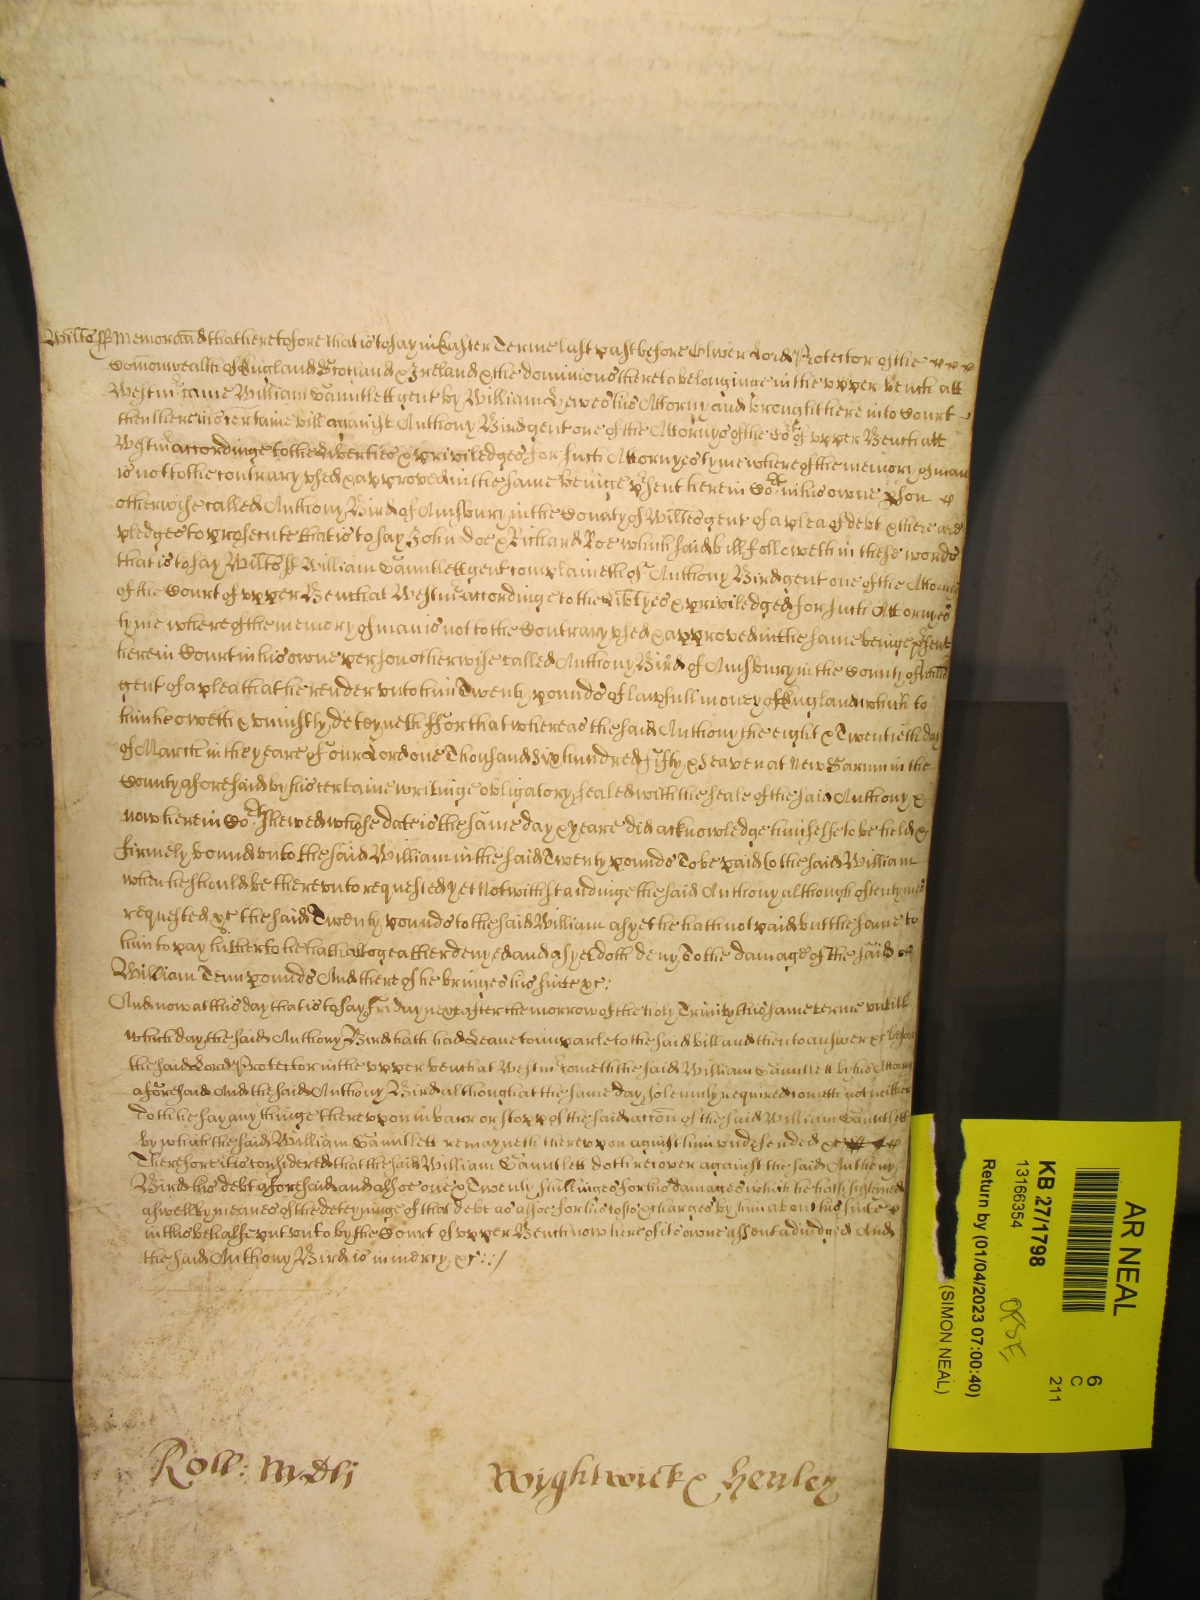 Wilts ss Memorand that heretofore that is to say in Easter Terme last past before Oliver Lord Protector of the
Comonwealth of England Scotland & Ireland & the dominions thereto belonginge in the upper bench att
Westm came William Gauntlett gent by William Hewes his Attorny and brought here into Court
then there his certaine bill against Anthony Bird gent one of the Attornys of the Cort of upper Bench att
Westm accordinge to the liberties & priviledges for such Attornyes tyme whereof the memory of man
is not to the contrary used & approved in the same beinge psent here in Cort in his owne pson
otherwise called Anthony Bird of Amsbury in the County of Wilts gent of a plea of debt & there are
pledges to prosecute that is to say John Doe & Richard Roe which said bill followeth in these words
that is to say Wilts ss William Gauntlett gent complaineth of Anthony Bird gent one of the Attornys
of the Court of upper Bench at Westm accordinge to the libtyes & priviledges for such Attornyes
tyme whereof the memory of man is not to the Contrary used & approved in the same beinge psent
here in Court in his owne person otherwise called Anthony Bird of Amsbury in the County of Wilts
gent of a plea that he render unto him Twenty pounds of lawfull money of England which to
him he oweth & uniustly deteyneth ffor that whereas the said Anthony the eight & Twentieth day
of March in the yeare of our Lord one Thousand six hundred fifty & Seaven at New Sarum in the
County aforesaid by his certaine writinge obligatory sealed with the seale of the said Anthony &
now here in Cort shewed whose date is the same day & yeare did acknowledge himselfe to be held &
firmely bound unto the said William in the said Twenty pounds To be paid to the said William
when he should be thereunto requested yet Notwithstandinge the said Anthony although oftentymes
requested &c the said Twenty pounds to the said William as yet he hath not paid but the same to
him to pay hitherto he hath altogeather denyed and as yet doth deny To the damage of the said
William Tenn pounds And thereof he bringes his suite &c:
And now at this day that is to say ffriday next after the morrow of the holy Trinity this same terme untill
which day the said Anthony Bird hath had Leave to imparle to the said bill and then to answer &c before
the said Lord Protector in the upper bench at Westm cometh the said William Gauntlett by his Attorny
aforesaid And the said Anthony Bird although at the same day solemnly required cometh not neither
doth he say any thinge thereupon in barr or stopp of the said action of the said William Gauntlett
by which the said William Gauntlett remayneth thereupon against him undefended &c
Therefore it is considered that the said William Gauntlett doth recover against the said Anthony
Bird his debt aforesaid and alsoe one & Twenty shillinges for his damages which he hath susteined
aswell by meanes of the deteyninge of that debt as alsoe for his costs & charges by him about his suite
in this behalfe put unto by the Court of upper Bench now here of his owne assent adiudged And
the said Anthony Bird is in mercy &c:/
Roll: MDli
Wightwick & Henley
AR NEAL
6
C
211
KB 27/1798
13166354
Return by (01/04/2023 07:00:40)
(SIMON NEAL)